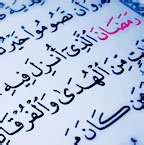 وَأَن تَصُومُوا۟ خَيْرٌ
رَمَضَانَ ٱلَّذِىٓ أُنزِلَ فِيهِ
مِّنَ ٱلْهُدَىٰ وَٱلْفُرْقَا
مَن كَانَ مَ